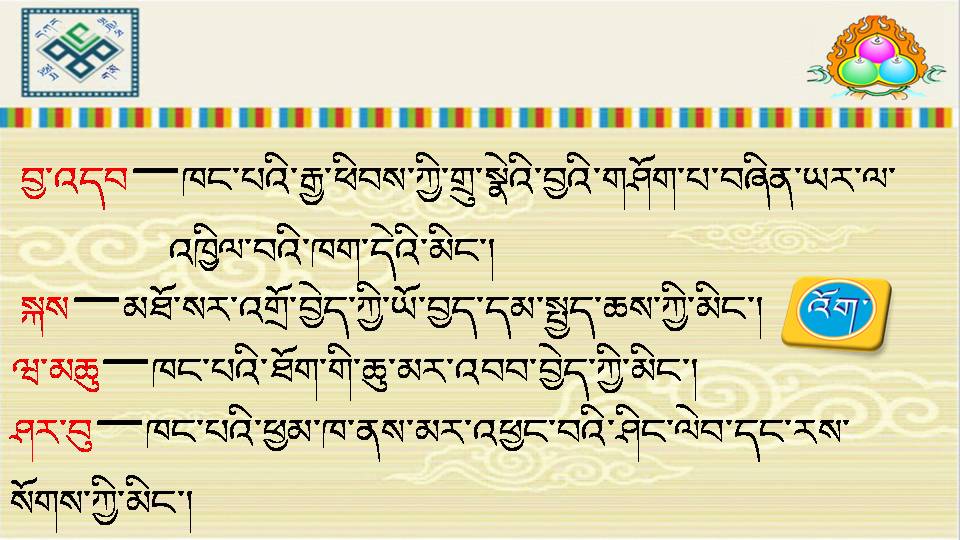 བྱ་འདབ—ཁང་པའི་རྒྱ་ཕིབས་ཀྱི་གྲུ་སྣེའི་བྱའི་གཤོག་པ་བཞིན་ཡར་ལ་
འཁྱིལ་བའི་ཁག་དེའི་མིང་།
སྐས—མཐོ་སར་འགྲོ་བྱེད་ཀྱི་ཡོ་བྱད་དམ་སྤྱད་ཆས་ཀྱི་མིང་།
འོག་
ཝ་མཆུ—ཁང་པའི་ཐོག་གི་ཆུ་མར་འབབ་བྱེད་ཀྱི་མིང་།
ཤར་བུ—ཁང་པའི་ཕྱམ་ཁ་ནས་མར་འཕྱང་བའི་ཤིང་ལེབ་དང་རས་
སོགས་ཀྱི་མིང་།